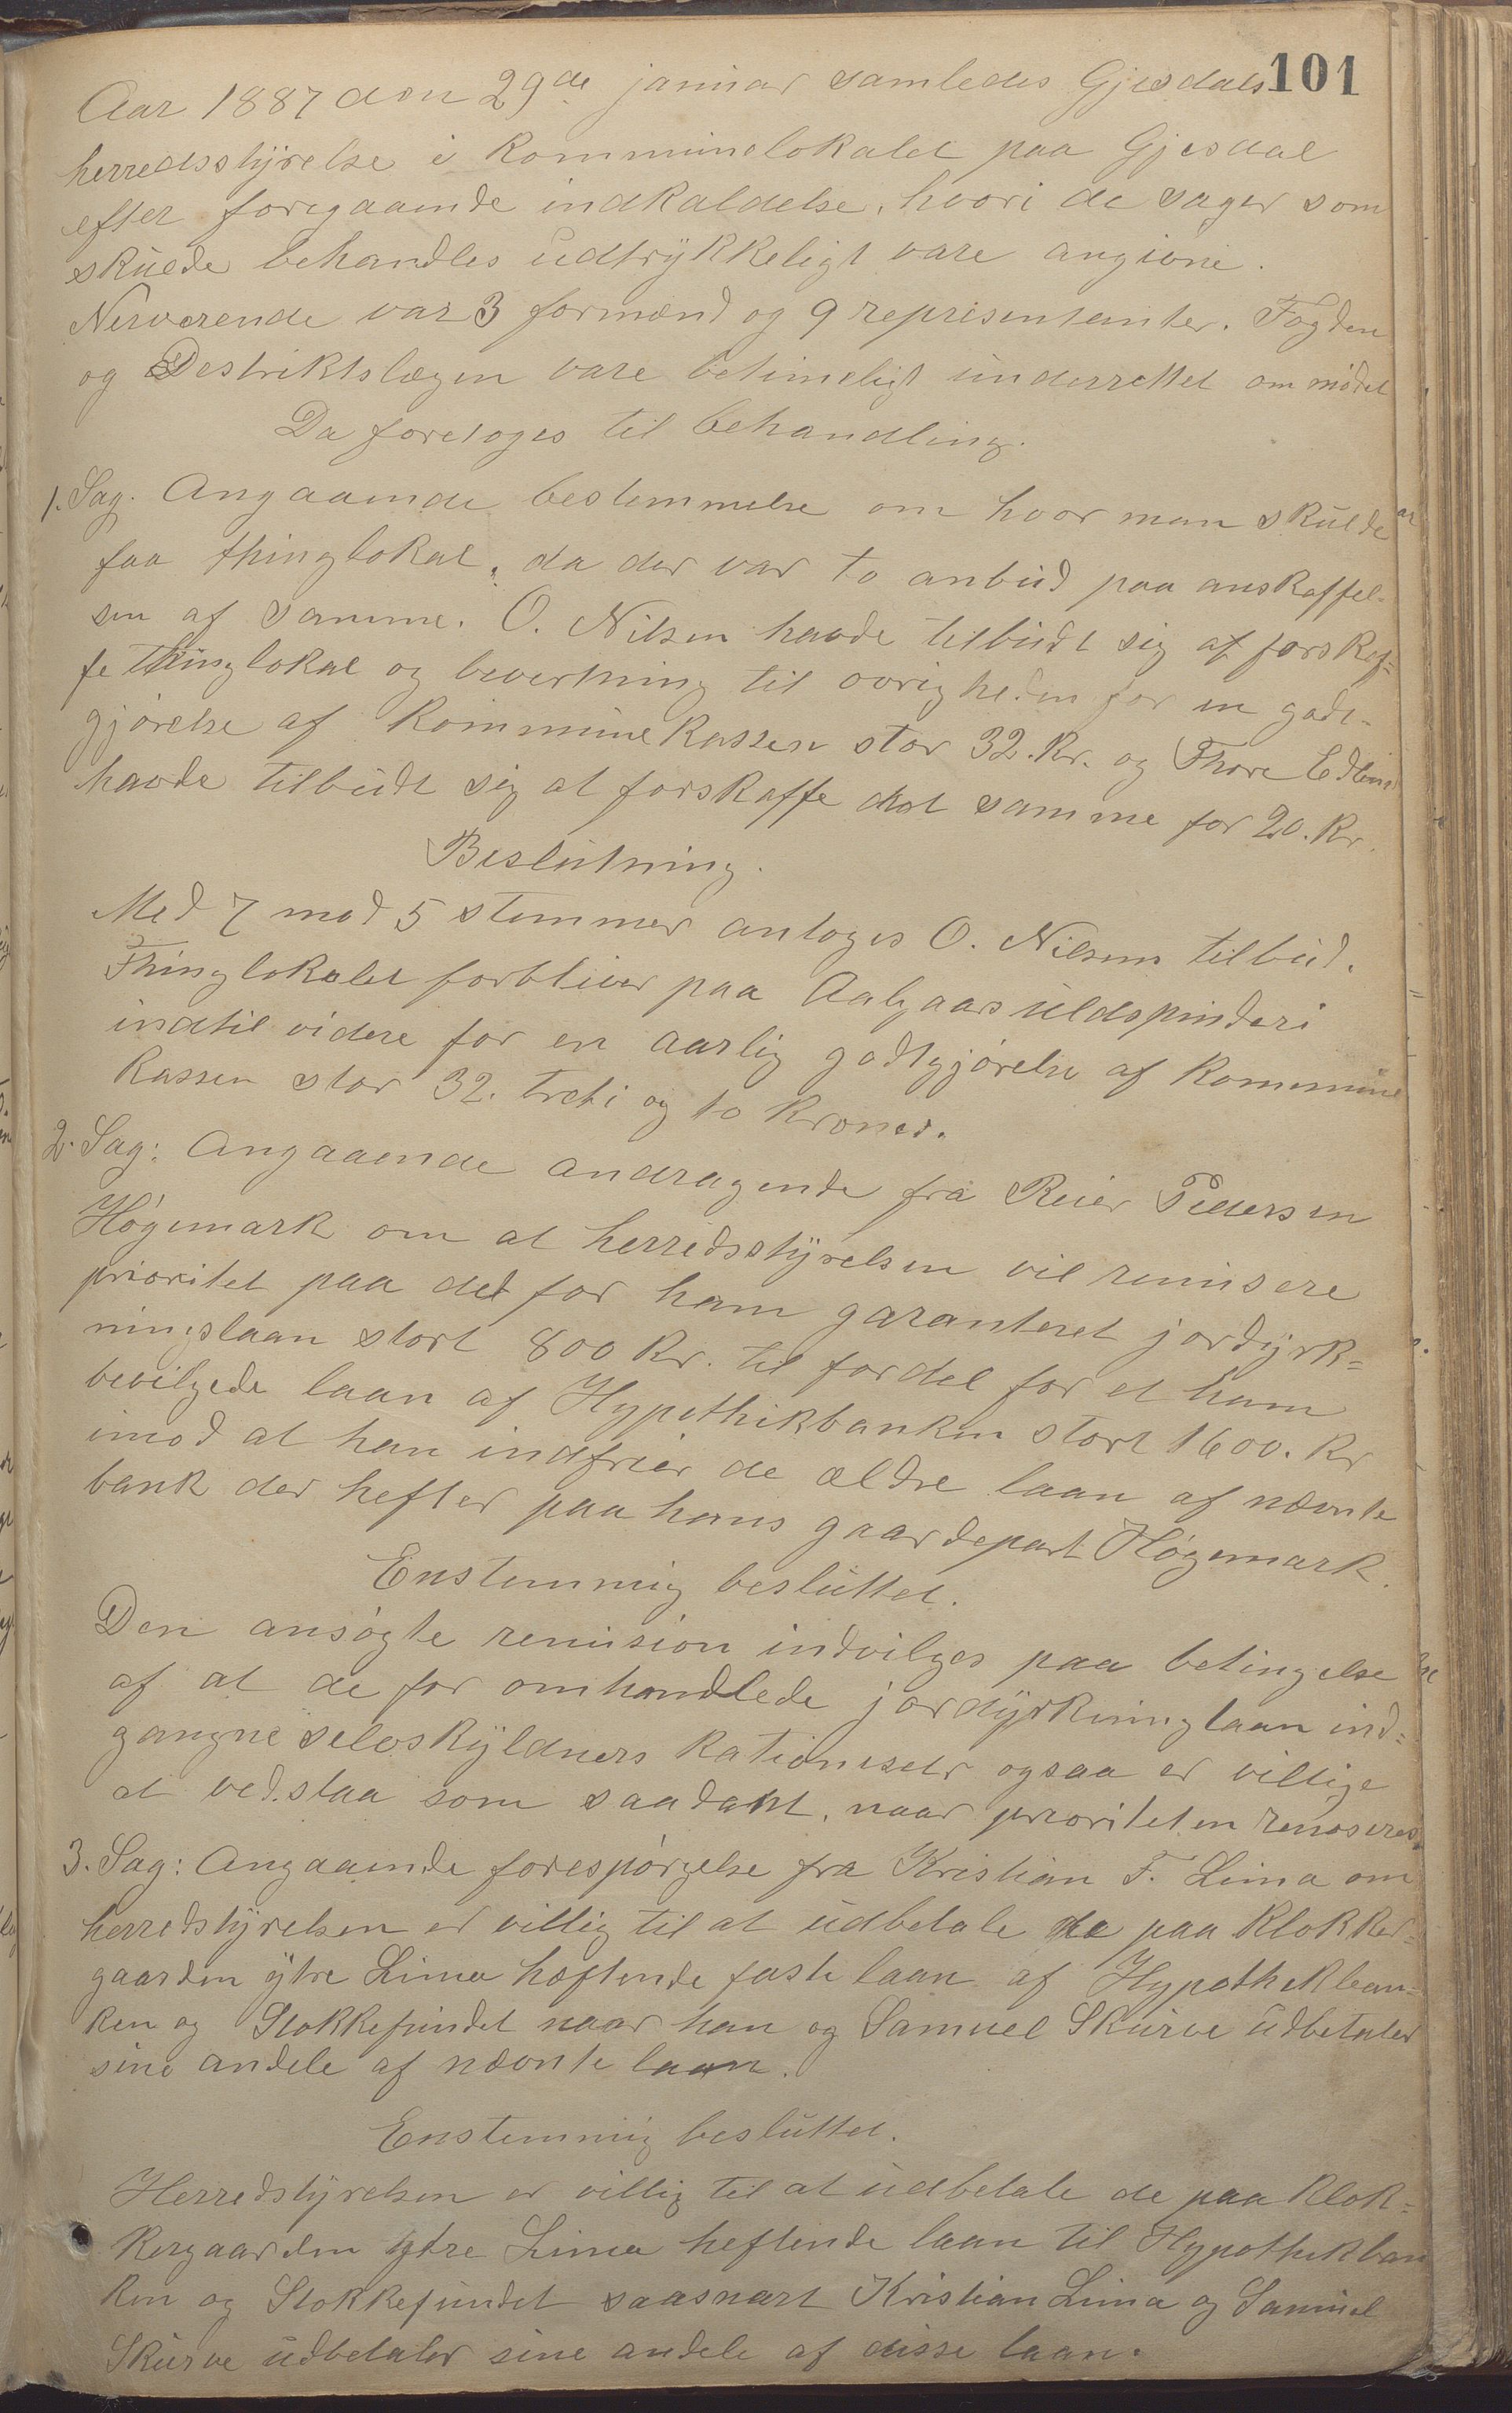 101
Aar 1887 den 29de januar samledes Gjesdals
herredsstyrelse i kommunelokalet paa Gjesdal
efter foregaaende indkaldelse, hvori de sager som
skulde behandles udtrykkeligt vare angivne.
Nerverende var 3 formænd og 9 representanter. Fogden
og Destriktslægen vare betimeligt underrettet om mødet
Da foretoges til behandling.
1. Sag. Angaaende bestemmelse om hvor man skulde
faa thinglokal, da der var to anbud paa anskaffel-
sen af samme. O. Nilsen havde tilbudt sig at forskaf-
fe thinglokal og bevertning til øvrigheden for en godt-
gjørelse af kommunekassen stor 32. kr. og Thore Edland
havde tilbudt sig at forskaffe det samme for 20. kr.
Beslutning.
Med 7 mod 5 stemmer antoges O. Nilsens tilbud.
Thinglokalet forbliver paa Aalgaars uldspinderi
indtil videre for en aarlig godtgjørelse af kommune
kassen stor 32. treti og to kroner.
2. Sag: Angaaende andragende fra Reier Pedersen
Høgemark om at herredsstyrelsen vil remisere
prioritet paa det for ham garanteret jordyrk=
ningslaan stort 800 kr. til fordel for et ham
bevilgede laan af Hypothikbanken stort 1600. kr
imod at han indfrier de ældre laan af nævnte
bank der hefter paa hans gaardepart Høgemark.
Enstemmig besluttet.
Den ansøgte remision indvilges paa betingelse
af at de for omhandlede jordyrkninglaan ind=
gangne selvskyldners kationister ogsaa er villige
at vedstaa som saadant, naar prioriteten remoseres.
3. Sag: Angaaende forespørgelse fra Kristian T. Lima om
herredstyrelsen er villig til at udbetale de paa klokker=
gaarden ytre Lima hæftende faste laan af Hypothekban=
ken og Stokkefundet naar han og Samuel Skurve udbetaler
sine andele af nævnte laan.
Enstemmig besluttet.
Herredstyrelsen er villig til at udbetale de paa klok=
kergaarden ytre Lima heftende laan til Hypothikban
ken og Stokkefundet saasnart Kristian Lima og Samuel
Skurve udbetaler sine andele af disse laan.